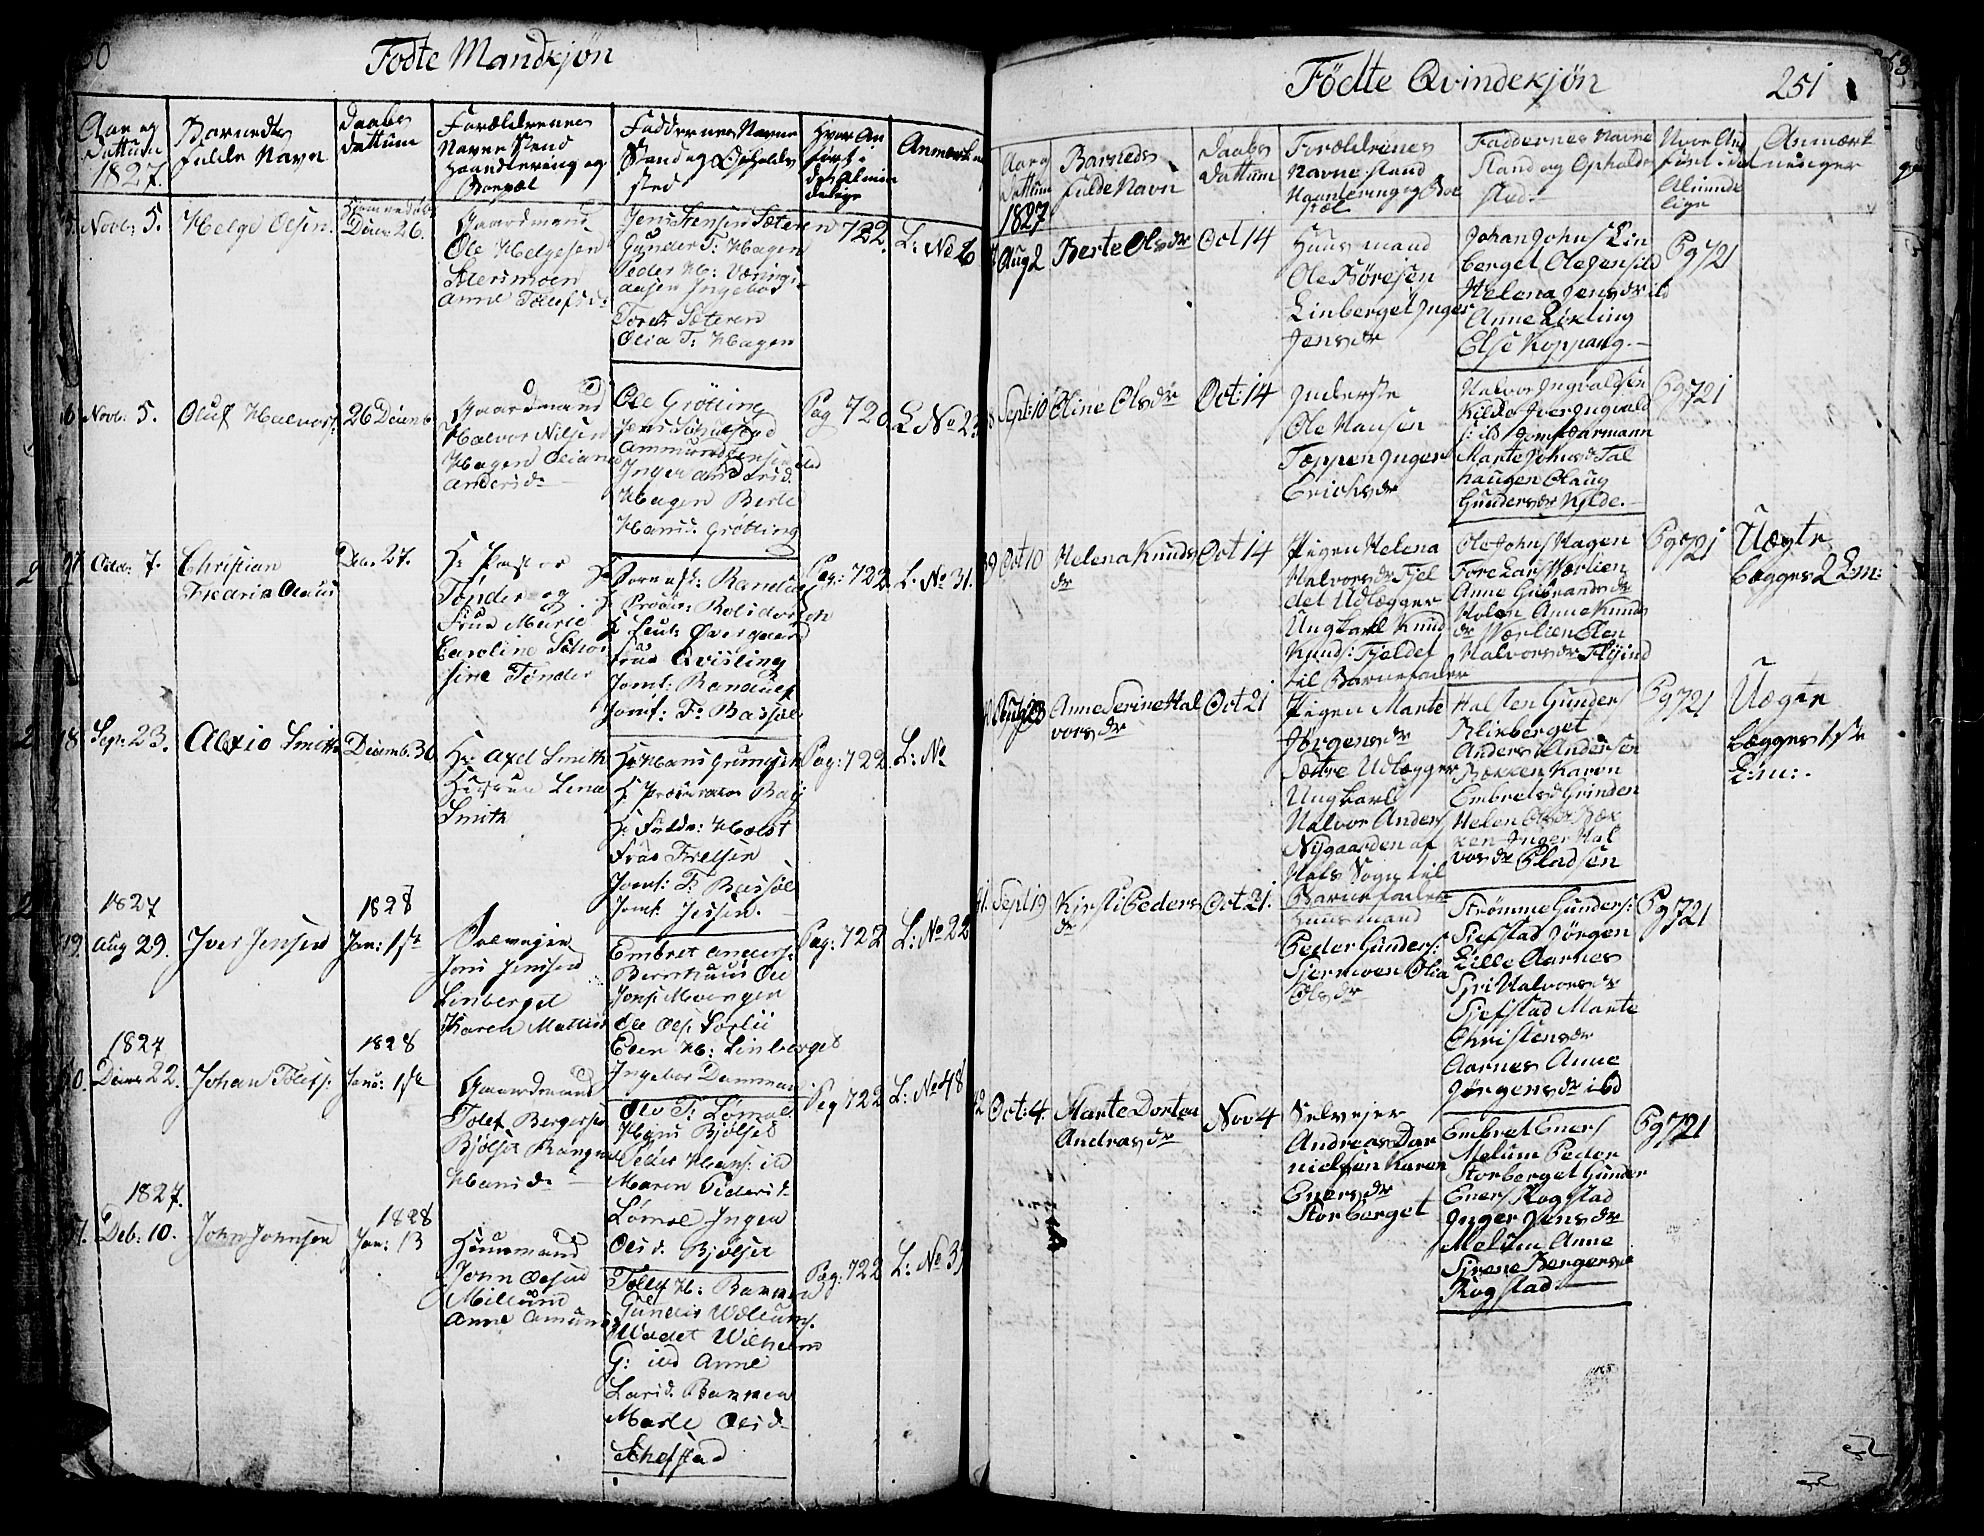 Fødte Mandkjøn
Aar og
Dattum
1827.
Barnedts
fulde Navn
Daabs
dattum
Forældrenes
Navne Stend
Haandtering og
Boepæl
Faddernes Navne
Stand og Opholds
sted
Hvor An
ført i
det Almin
delige
Anmærk
Novb: 5.
Helge Olsen.
Decem: 26.
Gaardmand
Ole Helgesen
Stersmoen
Anne Tollefsd:
Jens Hensen Sæteren
Gunder T: Hagen
Peder H: Værings
aasen Ingebor
Tores Sæteren
Olia T: Hagen
722.
L: No 6
Novb: 5.
Oluf Halvors:
26 Decemb:
Gaardmand
Halvor Nilsen
Hagen Oliana
Andersd:
Ole Grøtting
Jens Schefstad
Ammund Jens: ibd
Inger Andersd.
Hagen Berte
Hansd: Grøtting
Pag 720
L No 23
Octbr: 7.
Christian
Fredrik Olaus
Dec. 27.
Hr Pastor
Tønder og
Frue Marie
Caroline
sine Tønder
Hr Leut: Øvergaard
Frue Qvisling
Jomf: Randulf
Jomf: F: Bassøe
Pag: 722
L: No 31.
18
Sept: 23.
Alexio Smith
Decemb. 30
Hr: Axel Smith
Hustrue Lena
Smith
Hr Hans Grumsen
Hr Procurator
Hr Fuldm: Holst
Frue Frelsen
Jomf: F: Bassøe
Jomf: Jessen.
Pag: 722
L: No
1827
Aug 29.
Iver Jensen
1828
Jan: 1ste
Selveyer
Jens Jensen
Linberget
Karen Mattis
Embret Anders:
Bernthuus Ole
Jens: Moengen
Ole Ols: Sorlie
Elen H: Linberget
Ingebor Damman
Pag: 722
L: No 22
1827
Decem 22.
Johan Tolefs:
1828
Janu: 1ste
Gaardmand
Tolef Bergersen
Bjølset Rangne
Hansd:
Ole T: Lømoe
Hans Bjølset
Peder Hans: ibd
Maren Pedersd:
Lømoe Ingea
Olsd. Bjølset
Pag 722
L: No 48
1827.
Deb: 10.
John Johnsen
1828
Jan: 13
Huusmand
John Olsen
Millund
Anne Amunds
Tollef H: Bammen
Gunder Willums.
Mødet Wilhelm
G: ibd Anne
Larsd. Bammen
Marte Olsd:
Schefstad
Pag: 722
L: No 37
Fødte Qvindekjøn
251
Aar og
Dattum
1827
Barneds
fulde Navn
Daabs
Dattum
Forældrenes
Navne stand
Haantering og Boe
pæl
Faddernes Navne
Stand og Opholds
sted
Hvor An
ført i de
Alminde
lige
Anmærk
ninger
Aug 2
Berte Olsdr
Oct 14
Huusmand
Ole Børesen
Linberget Inger
Jensdr
Johan Johns: Lin
berget Ole Jens: ibd
Helena Jensdr ibd
Anne Løkling
Else Koppang.
Pg 721
Sept: 10
Eline Olsdr
Oct: 14
Inderste
Ole Hansen
Tøppen Inger
Ericksdr
Halvor Ingvaldsen
Kilde Iver Ingvald
s: ibd
Marte Johnsd: Tal
haugen Olaug
Gundersdr Kilde.
Pg 721
39
Oct 10
Helena Knuds
dr
Oct 14
Pigen Helena
Halvorsdr Fjel
det Udlægger
Ungkarl Knud
Knuds: Fjeldet
til Barnefader
Ole Johns: Hagen
Tore Lars: Mærlien
Anne Gulbrandsdr
Holen Anne Knuds
dr Mærlien Elen
Halvorsdr Flyind
Pg 721
Uægte
begges 2 L:m:
Aug 23
Anne Serine Hal
vorsdr
Oct 21
Pigen Marte
Jørgensdr
Sætre Udlægger
Ungkarl
Halvor Anders
Nygaarden af
Hofs Sogn til
Barnefader
Halsten Gunders
Klinberget
Anders Andersen
Bækken Karen
Embretsd Grinden
Helen Olsdr Bæk
ken Inger Hal
vorsdr Pladsen
Pg 721
Uægte
begges 1ste
L:m:
41.
Sept 19
Kirsti Peders
dr
Oct 21.
Huusmand
Peder Gunders:
Sjermoen Olia
Olsdr
Strømme Gunders:
Sjefstad Jørgen
Lille Aarnes
Siri Halvorsdr
Sjefstad Marte
Christensdr
Aarnes Anne
Jørgensdr ibd
Pg 721
42
Oct: 4
Marte Dortea
Andreasdr
Nov 4
Selvejer
Andreas Dan
nielsen Karen
Enersdr
Storberget
Embret Eners
Melum Peder
Storberget Gunder
Eners Rogstad
Inger Jensdr
Melum Anne
Sirene Bergersd
Rogstad
Pg 721